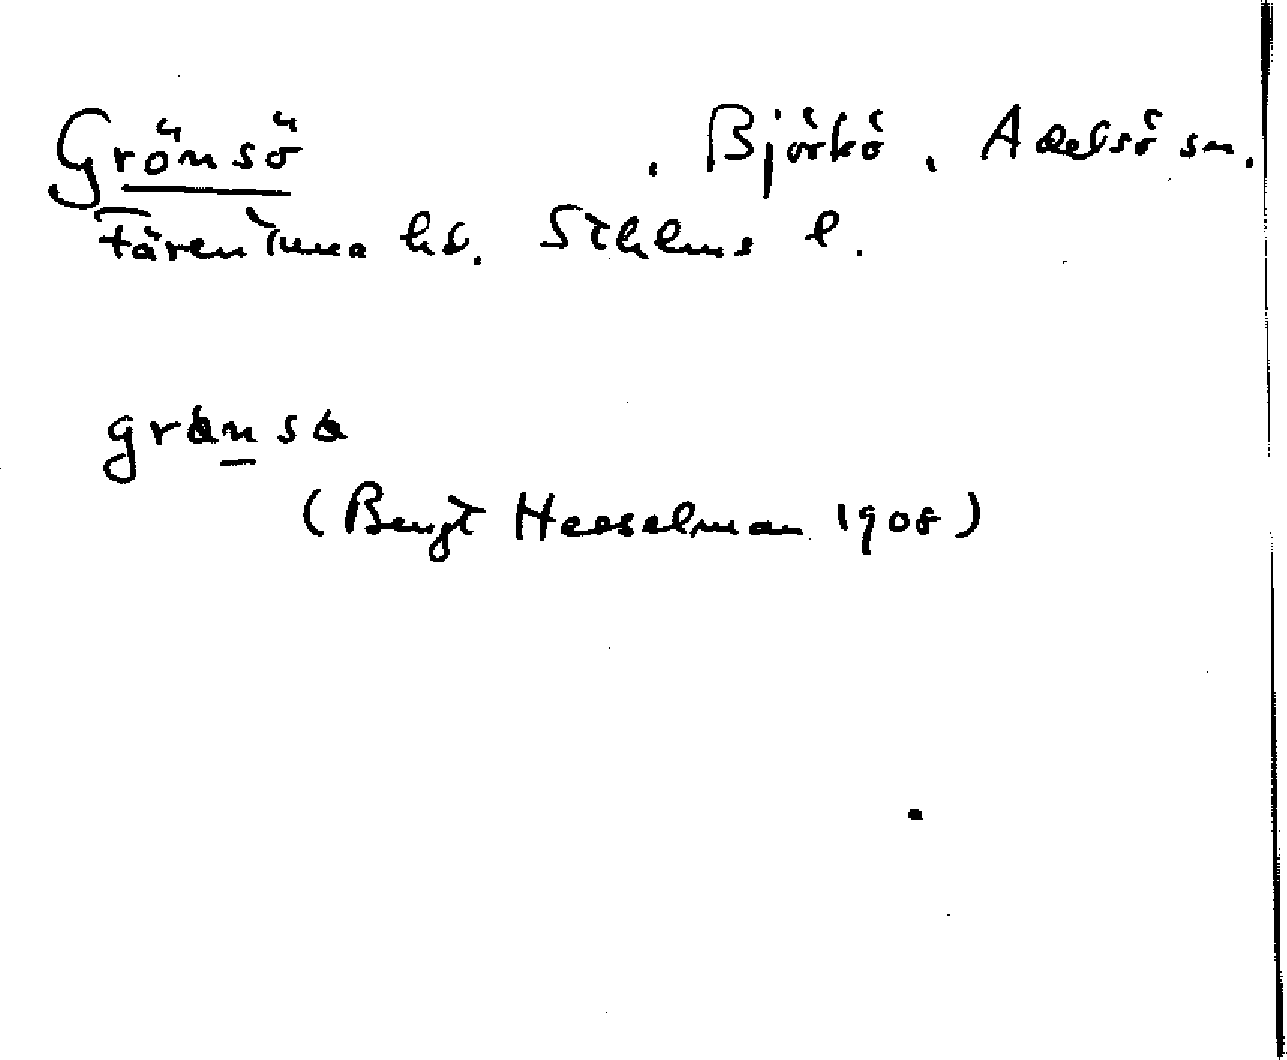 Grönsö . Björkö, Adelsö sn.
Färentuna hd. Sthlms l.
(Bengt Hesselman 1908)